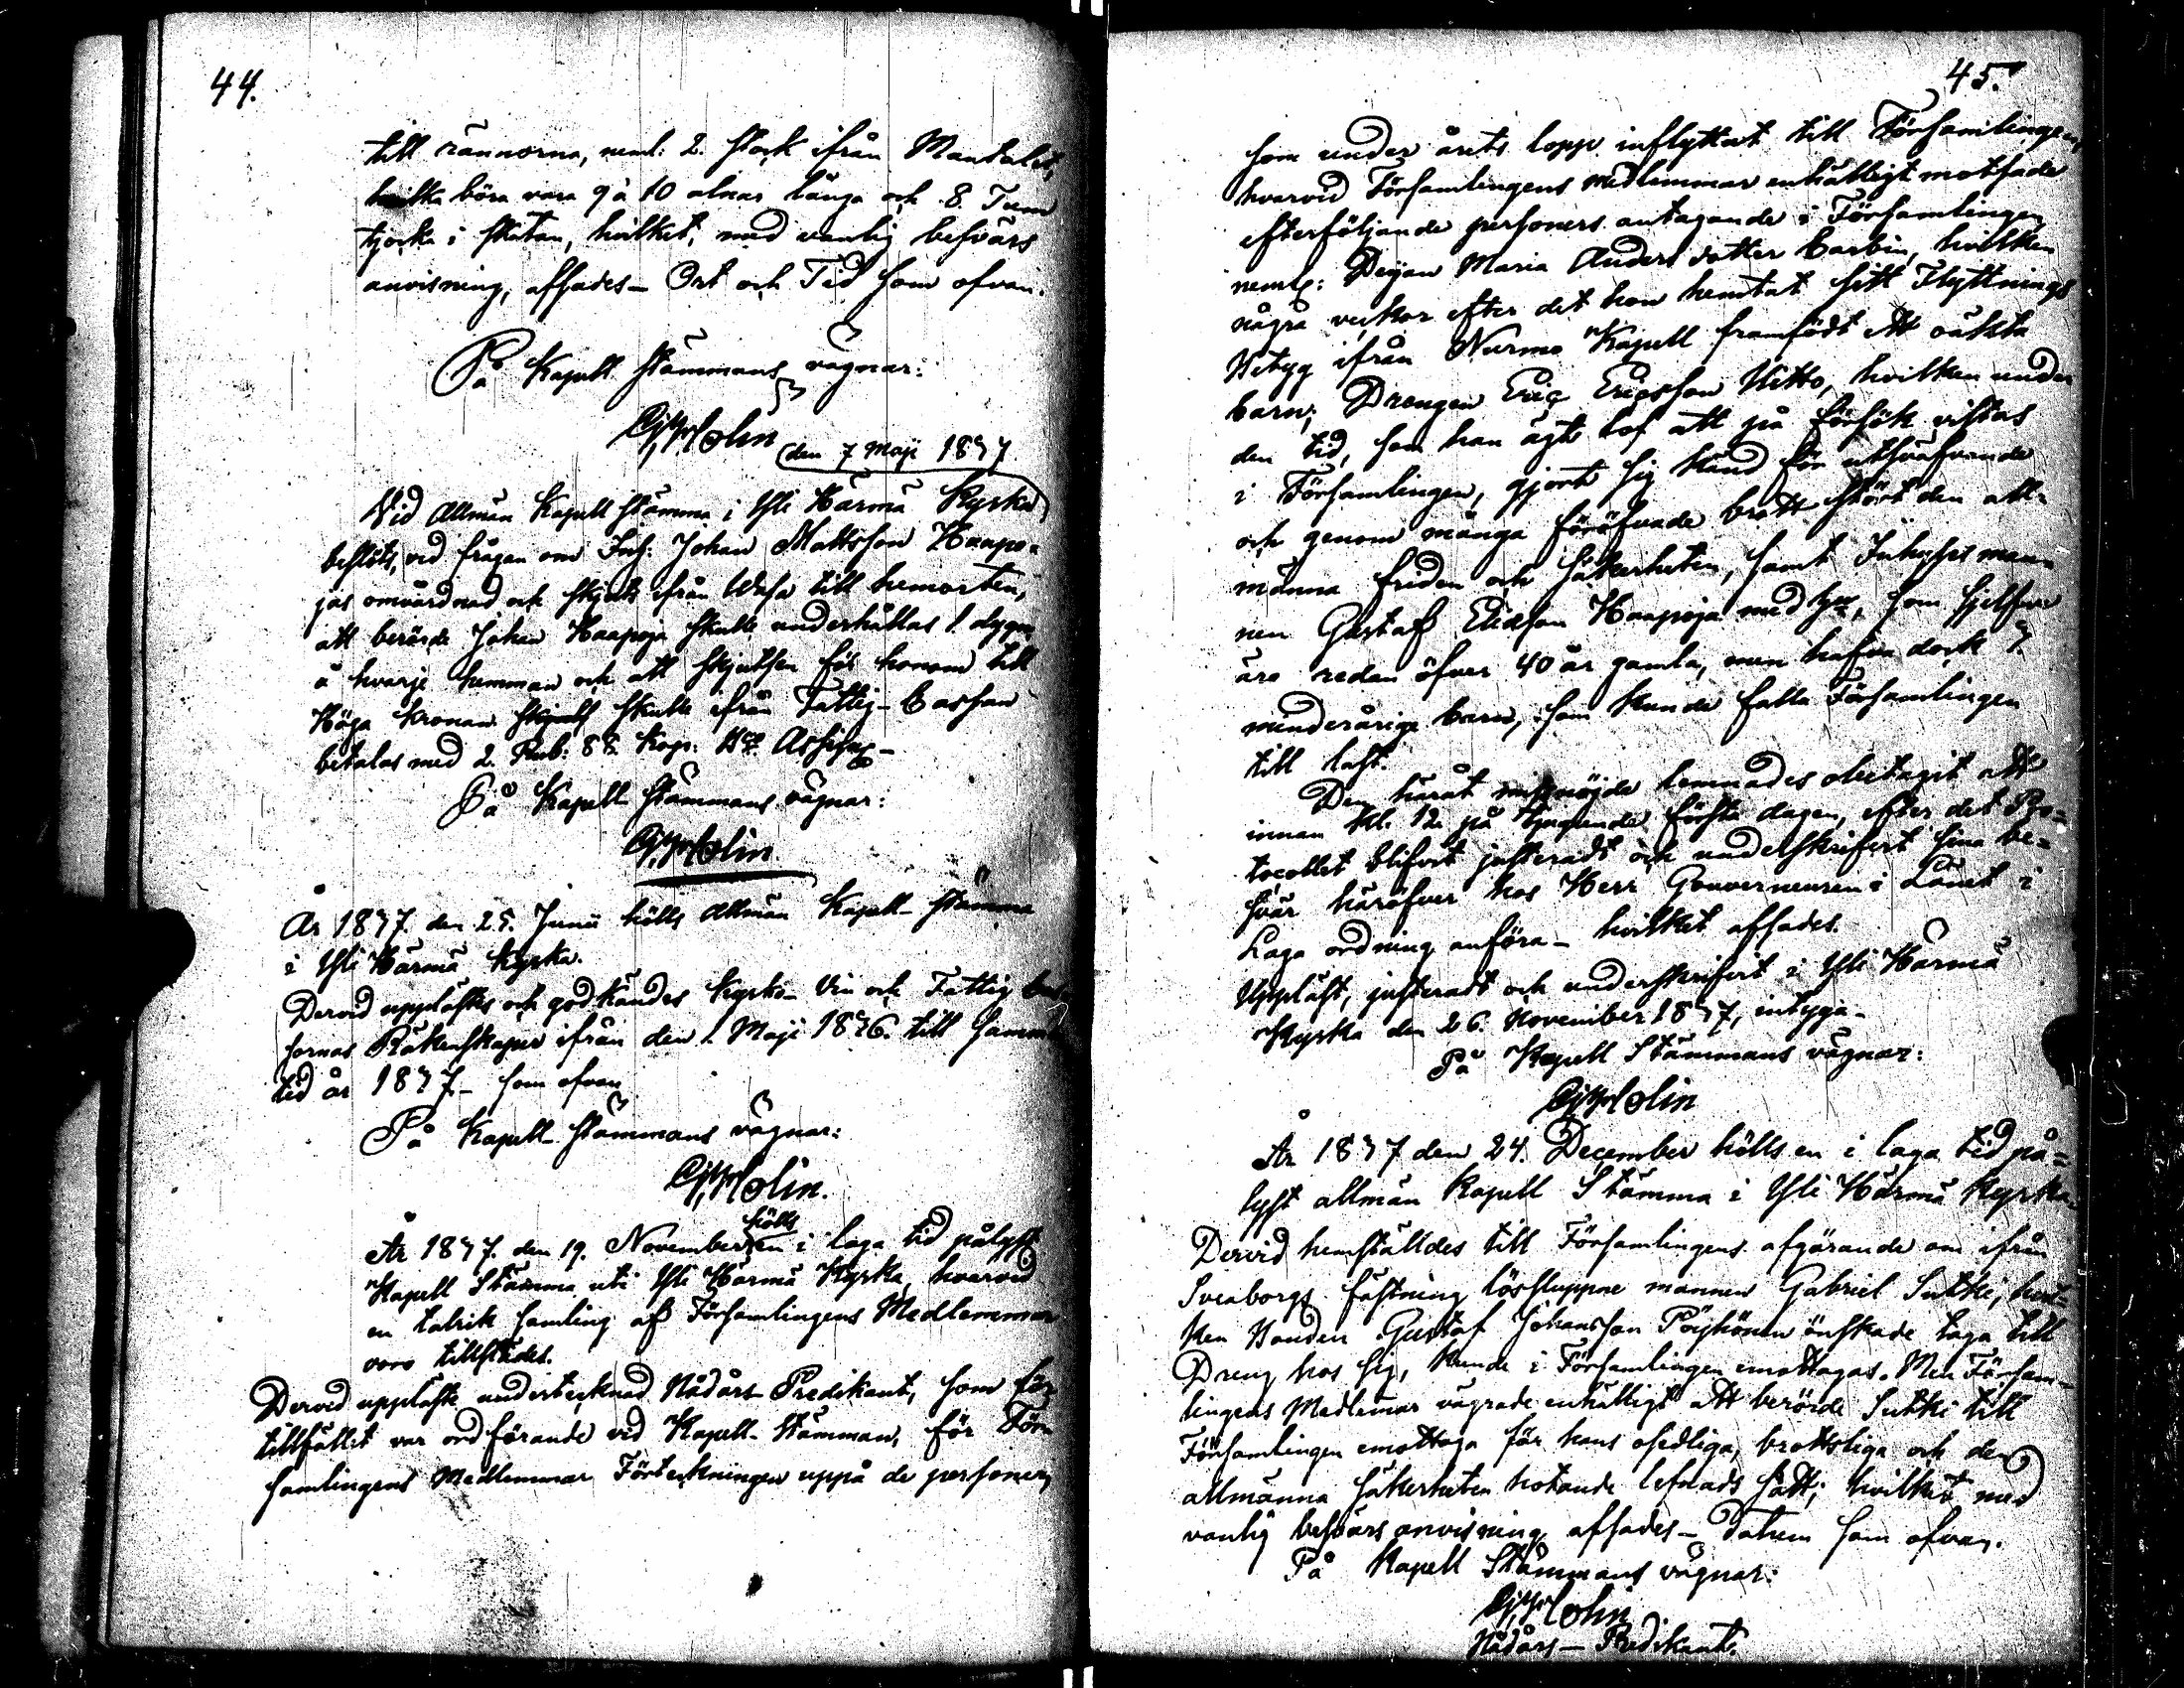 44.
till rännorna, neml: 2. stock ifrån Mantalet,
hvilka böra vara 9 à 10 alnar långa och 8. Tum
tjocka i skatan, hvilket, med vanlig besvärs
anvisning, afsades – Ort och Tid som ofvan.
På Kapell stämmans vägnar:
Holin
den 7 Maji 1837
Vid Allmän Kapell stämma i Yli Härmä Kyrka
beslöts, vid frågan om Inh: Johan Mattsson Haapo-
jas omvårdnad och skjuts ifrån Wasa till hemorten,
att berörde Johan Haapoja skulle underhållas 1. dygn
å hvarje hemman och att skjutsen för honom till
Höga Kronan skulle ifrån Fattig-Cassan
betalas med 2. Rub: 88. Kop: Bco Assign
På Kapell stämmans vägnar:
Holin
År 1837. den 25. Junii hölls Allmän Kapell-stämma
i Yli Härmä Kyrka.
Dervid upplästes och godkändes Kyrko- Vin och Fattig Cas-
sornas Räkenskaper ifrån den 1. Maji 1836. till samma
tid år 1837 – som ofvan
På Kapell stämmans vägnar:
Holin.
År 1837. den 19. November hölls en i laga tid pålyst
Kapell Stämma uti Yli Härmä Kyrka, hvarvid
en talrik samling af Församlingens Medlemmar
voro tillstädes.
Dervid uppläste undertecknad Nådårs-Predikant, som för
tillfället var ordförande vid Kapell-Stämman, för För-
samlingens Medlemmar Förteckningen uppå de personer,
45.
som under årets lopp inflyttat till Församlingen,
hvarvid Församlingens medlemmar enhälligt motsade
efterföljande personers antagande i Församlingen
neml: Pigan Maria Anders dotter Carbin, hvilken
några veckor efter det hon hemtat sitt Flyttnings
Betyg ifrån Nurmo Kapell framfödt ett oäkta
barn; Drengen Eric Ericsson Hitto, hvilken under
den tid, som han ägt lof att på försök vistas
i Församlingen, gjort sig känd för utsväfvande
och genom många föröfvade brott stört den all-
männa friden och säkerheten, samt Inhyses man-
nen Gustaf Eliasson Haapoja med hu, som sjelfve
äro redan öfver 40 år gamla, men hafva dock 7.
minderåriga barn, som kunde falla Församlingen
till last.
Den häråt missnöjde lemnades obetagit att
innan kl. 12 på tjugunde första dagen, efter det Pro-
tocollet blifvit justeradt och underskrifvit sina be-
svär häröfver hos Herr Gouverneuren i Länet i
Laga ordning anföra – hvilket afsades.
Uppläst, justeradt och underskrifvit i Yli Härmä
Kyrka den 26. November 1837, intyga –
På Kapell Stämmans vägnar:
Holin
År 1837 den 24. December hölls en i laga tid på-
lyst allmän Kapell Stämma i Yli Härmä Kyrka.
Dervid hemställdes till Församlingens afgörande om ifrån
Sveaborgs fästning lössluppne mannen Gabriel Sutki, hvil-
ken Bonden Gustaf Johansson Pöyhönen önskade taga till
Dreng hos sig, kunde i Församlingen emottagas. Men Försam-
lingens Medlemar vägrade enhälligt att berörde Sutki till
Församlingen emottaga för hans osedliga, brottsliga och den
allmänna säkerheten hotande lefnads sätt; hvilket med
vanlig besvärs anvisning afsades – Datum som ofvan.
På Kapell Stämmans vägnar:
Holin
Nådårs – Predikant.